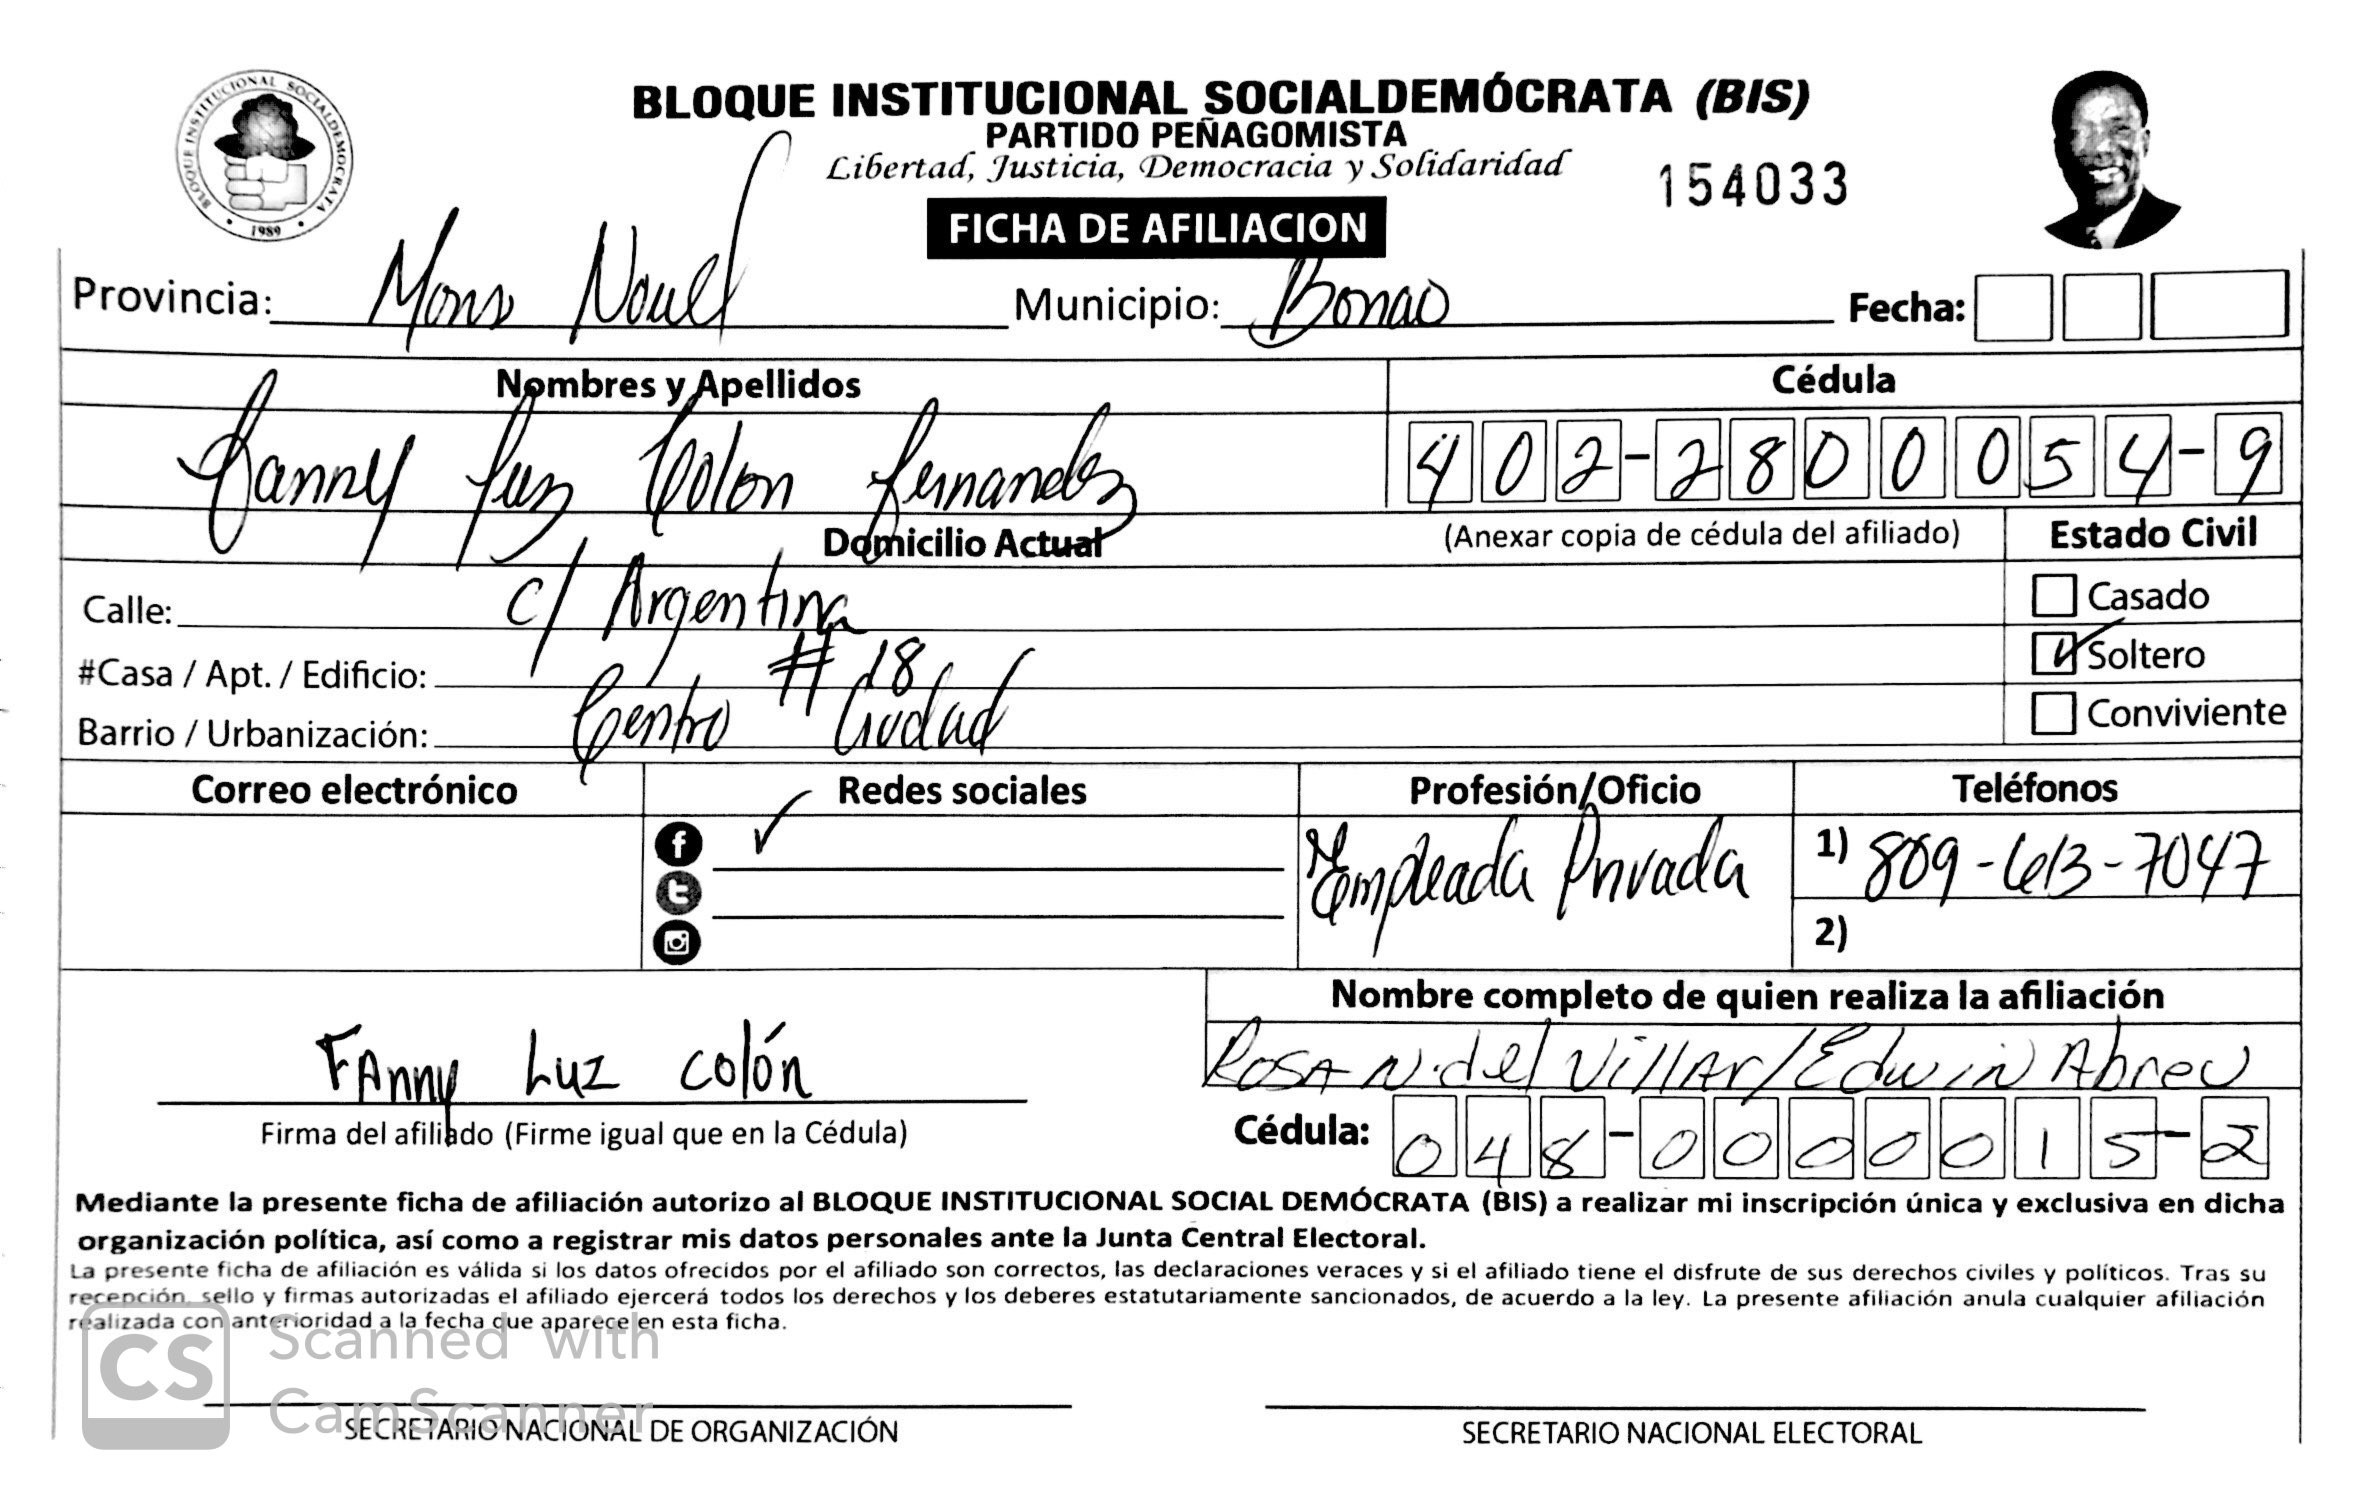 BLOQUE INSTITUCIONAL SOCIALDEMÓCRATA
1989
BLOQUE INSTITUCIONAL SOCIALDEMÓCRATA (BIS)
PARTIDO PEÑAGOMISTA
Libertad, Justicia, Democracia y Solidaridad
154033
FICHA DE AFILIACION
Provincia: Mons Nouel Municipio: Bonao Fecha:
Nombres y Apellidos Cédula
Fanny Luz Colon Fernandez 402-2800054-9
Domicilio Actual (Anexar copia de cédula del afiliado) Estado Civil
Calle: c/ Argentina Casado
#Casa / Apt. / Edificio: # 18 Soltero
Barrio / Urbanización: Centro Ciudad Conviviente
Correo electrónico Redes sociales Profesión/Oficio Teléfonos
Empleada Privada 1) 809-613-7047
2)
Nombre completo de quien realiza la afiliación
Fanny Luz Colón Rosa N. del Villar/Edwin Abreu
Firma del afiliado (Firme igual que en la Cédula) Cédula: 048-0000015-2
Mediante la presente ficha de afiliación autorizo al BLOQUE INSTITUCIONAL SOCIAL DEMÓCRATA (BIS) a realizar mi inscripción única y exclusiva en dicha
organización política, así como a registrar mis datos personales ante la Junta Central Electoral.
La presente ficha de afiliación es válida si los datos ofrecidos por el afiliado son correctos, las declaraciones veraces y si el afiliado tiene el disfrute de sus derechos civiles y políticos. Tras su
recepción, sello y firmas autorizadas el afiliado ejercerá todos los derechos y los deberes estatutariamente sancionados, de acuerdo a la ley. La presente afiliación anula cualquier afiliación
realizada con anterioridad a la fecha que aparece en esta ficha.
CS Scanned with
CamScanner
SECRETARIO NACIONAL DE ORGANIZACIÓN SECRETARIO NACIONAL ELECTORAL